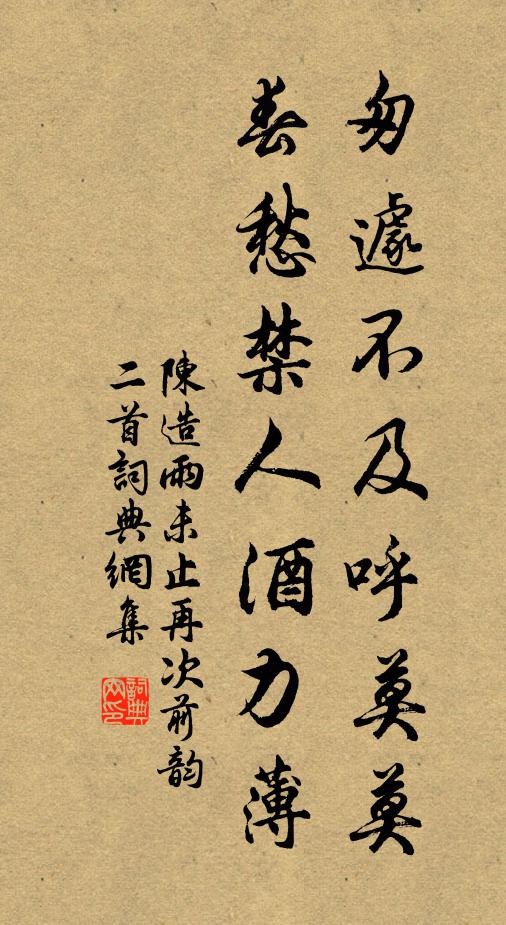 匆遽不及呼莫莫
春愁禁人酒力薄
陳造雨未止再次前韵
二首詞典網集
詞典網印